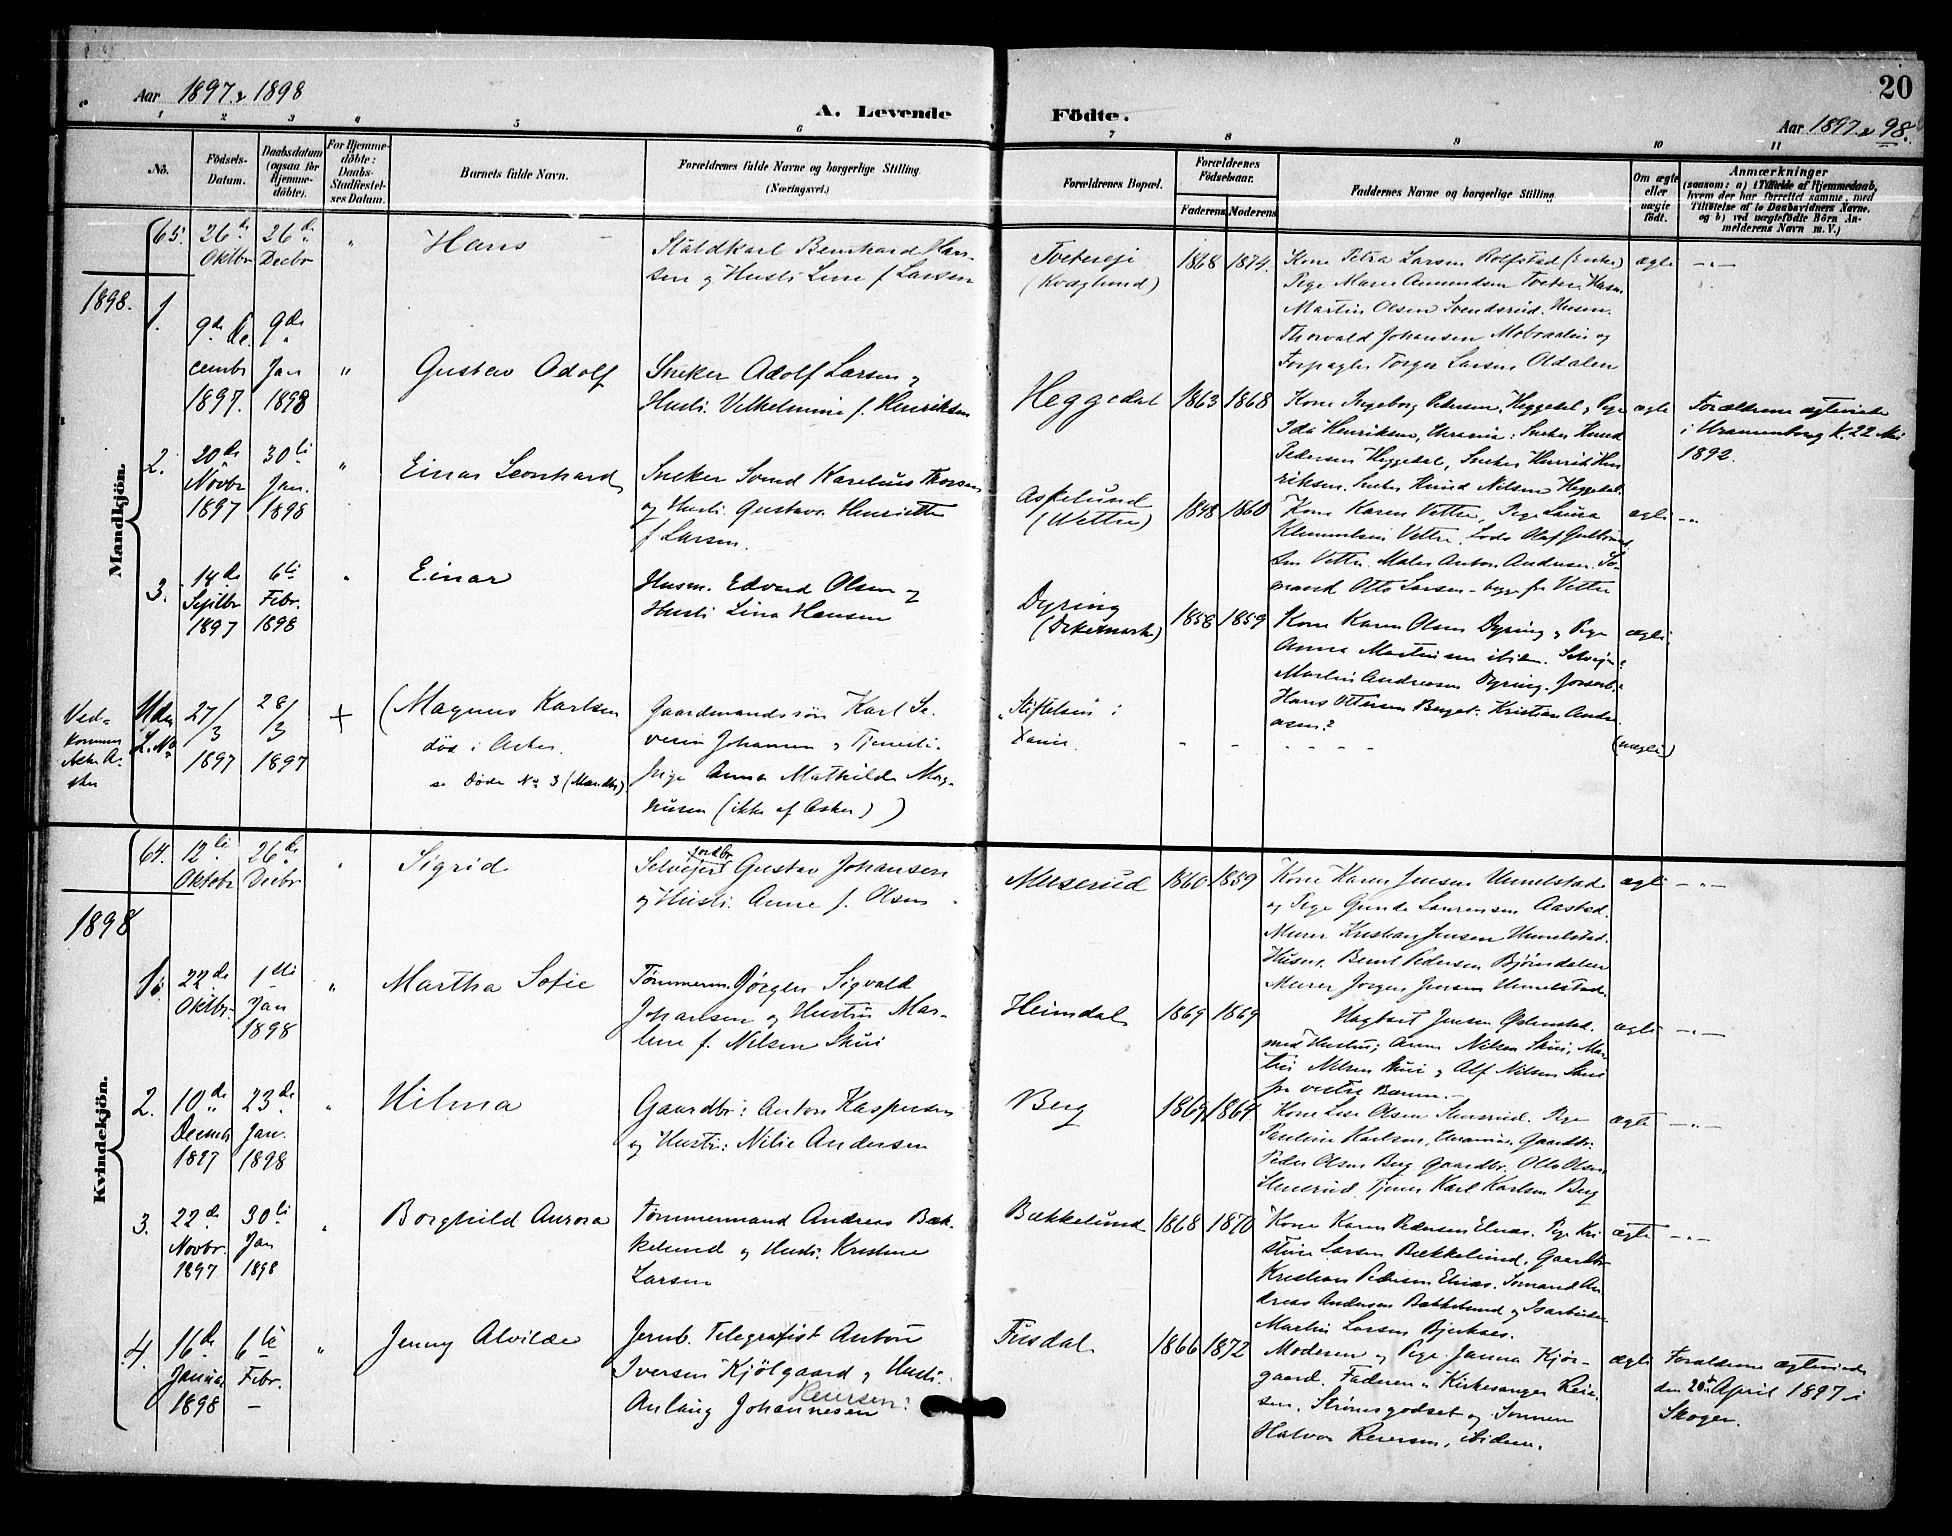 20
Aar 1897 & 1898
A. Levende
Födte.
Aar 1897 & 98.
1 2 3 4 5 6 7 8 9 10 11
No.
Födsels-
Datum.
Daabsdatum
(ogsaa for
Hjemme-
döbte).
For Hjemme-
döbte:
Daabs-
Stadfæstel-
ses Datum.
Barnets fulde Navn.
Forældrenes fulde Navne og borgerlige Stilling.
(Næringsvei.)
Forældrenes Bopæl.
Forældrenes
Födselsaar.
Faderens. Moderens.
Faddernes Navne og borgerlige Stilling.
Om ægte
eller
uægte
födt.
Anmærkninger
(saasom: a) i Tilfælde af Hjemmedaab,
hvem der har forrettet samme, med
Tilföielse af to Daabsvidners Navne.
og b) ved uægtefödte Börn An-
melderens Navn m. V.)
Mandkjön.
65. 26de Oktbr 26de Decbr " Hans
Staldkarl Bernhard Han-
sen og Hustr. Line f. Larsen
Tveterejе
(Kvæglund)
1868 1874.
Kone Petra Larsen Rolfstad
Pige Marie Amundsen Tveter, Husm.
Martin Olsen Svendsrud. Husm.
Thorvald Johansen og
Forpagter Torger Larsen Oldalen
ægte —"—
1898.
1. 9de De-
cembr
1897.
9de
Jan
1898
" Gustav Adolf
Sneker Adolf Larsen og
Hustr. Vilhelmine f. Henriksen
Heggedal
1863 1868
Kone Ingeborg Pedersen, Heggedal, Pige
Ida Henriksen, Urania: Sneker Knud
Pedersen Heggedal, Sneker Henrik Hen-
riksen. Sneker Knud Nilsen Heggedal.
ægte
Forældrene ægteviede
i Uranienborg K. 22 Mai
1892.
2. 20de
Novbr
1897
30te
Jan.
1898
" Einar Leonhard
Sneker Svend Karelius Thorsen
og Hustr. Gustava Henriette
f. Larsen.
Askelund
(Vettre)
1848 1860
Kone Karen Vettre, Pige Laura
Klemmetsen Vettre, Lods Olaf Gulbrand-
sen Vettre. Maler Anton Andersen. Sö-
mand Otto Larsen – begge fr. Vettre
ægte —"—
3. 14de
Septbr
1897
6te
Febr.
1898
" Einar
Husm. Edvard Olsen og
Hustr. Lina Hansen
Dyring
1858 1859
Kone Karen Olsen Dyring, Pige
Anna Martinsen ibidem. Selvejer
Martin Andreasen Dyring.
Hans Ottersen Berget. Kristian Ander-
sen?
ægte.
Ved-
kommer
Asker
Uden
L. No
27/3
1897
28/3
1897
+
(Magnus Karlsen
död i Asker.
se Döde No 3 (Mandkj)
Gaardmandssön Karl Se-
verin Johansen & Tjeneste-
pige Anna Mathilde Mag-
nusen (ikke af Asker))
"Stiftelsen i
" " " " " "
(uægte)
Kvindekjön.
64. 12te
Oktobr
26de
Decbr
" Sigrid
Selvejer jordbr. Gustav Johansen
og Hustr. Anne f. Olsen
Muserud
1860 1859
Kone Karen Jensen Unnelstad
og Pige Gunda Laurensen Aastad.
Murer Kristian Jensen Unnelstad.
Husm. Bernt Pedersen Björndalen
Murer Jörgen Jensen Unnelstad.
ægte —"—
1898
1. 22de
Oktbr.
1ste
Jan
1898
" Martha Sofie
Tömmerm. Jörgen Sigvald
Johansen og Hustru Mar-
lene f. Nilsen Skui
Heimdal
1869 1869
Hagbart Jensen Östenstad.
med Hustru, Nilsen Skui, Mar-
tin Nilsen Skui og Alf Nilsen Skui
fra vestre Bærum.–
ægte —"—
2. 10de
Decmbr
1897
23de
Jan.
1898
" Hilma
Gaardbr: Anton Kaspersen
og Hustr: Nilie Andersen
Berg
1869 1864
Kone Lise Olsen Stensrud. Pige
Pauline Karlsen, Urania. Gaardbr.
Peder Olsen Berg Gaardbr. Otto Olsen
Stensrud. Tjener Karl Karlsen Berg
ægte —"—
3. 22de
Novbr.
1897
30te
Jan
1898
" Borghild Aurora
Tömmermand Andreas Bæk-
kelund og Hustr. Kristine
Larsen
Bækkelund
1868 1870
Kone Karen Pedersen Elnæs. Pige Kri-
stine Larsen Bækkelund. Gaardbr
Kristian Pedersen Elnæs. Sömand An-
dreas Andersen Bækkelund og Isarbeider
Martin Larsen Bjerkaas.
ægte —"—
4. 16de
Januar
1898
6te
Febr.
–
" Jenny Alvilde
Jernb. Telegrafist Anton
Iversen Kjölgaard og Hustr.
Anlaug Johannesen Reiersen:
Fusdal
1866 1872
Moderen og Pige Janna Kjör-
gaard. Faderen & Kirkesanger Reier-
sen. Strömsgodset og Sönnen
Halvor Reiersen, ibidem.
ægte
Forældrene ægteviede
den 20de April 1897 i
Skoger.